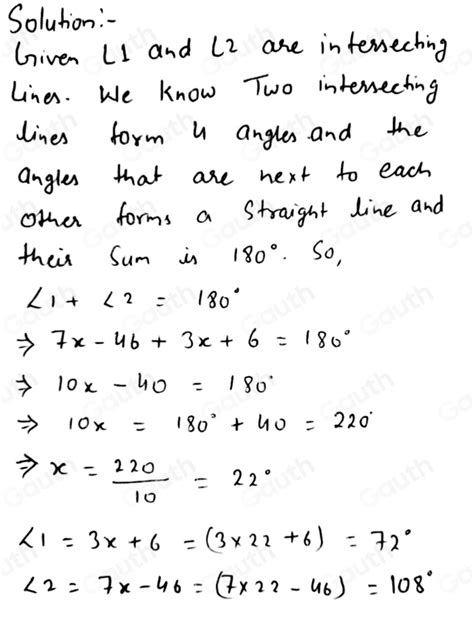 Solution:-
Given L1 and L2 are intersecting
Lines. We know Two intersecting
lines form 4 angles and the
angles that are next to each
other forms a straight line and
their sum is 180°. So,
∠1 + ∠2 = 180°
⇒ 7x - 46 + 3x + 6 = 180°
⇒ 10x - 40 = 180°
⇒ 10x = 180° + 40 = 220°
⇒ x = 220/10 = 22°
∠1 = 3x + 6 = (3×22 + 6) = 72°
∠2 = 7x - 46 = (7×22 - 46) = 108°